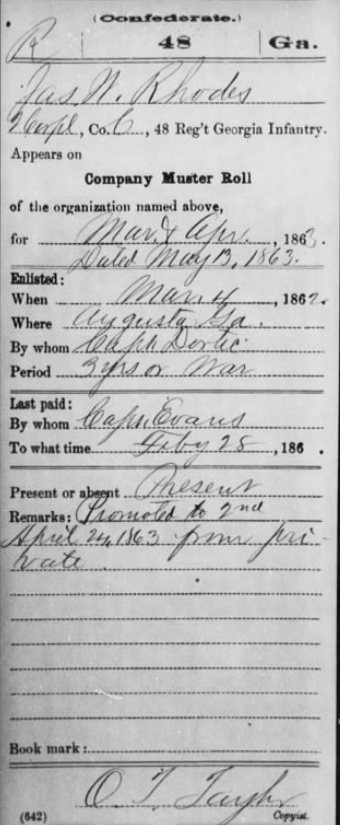 (Confederate.)
R 48 Ga.
Jas W. Rhodes
2 Corpl, Co. C, 48 Reg't Georgia Infantry.
Appears on
Company Muster Roll
of the organization named above,
for Mar & Apr., 1863.
Dated May 13, 1863.
Enlisted:
When Mar. 4, 1862.
Where Augusta Ga.
By whom Capt.
Period 3 yrs or War
Last paid:
By whom Capt. Evans
To what time Feby 28, 186 .
Present or absent Present
Remarks: Promoted to 2nd
April 24, 1863 from pri-
vate
Book mark:
O. T. Taylor
(642) Copyist.